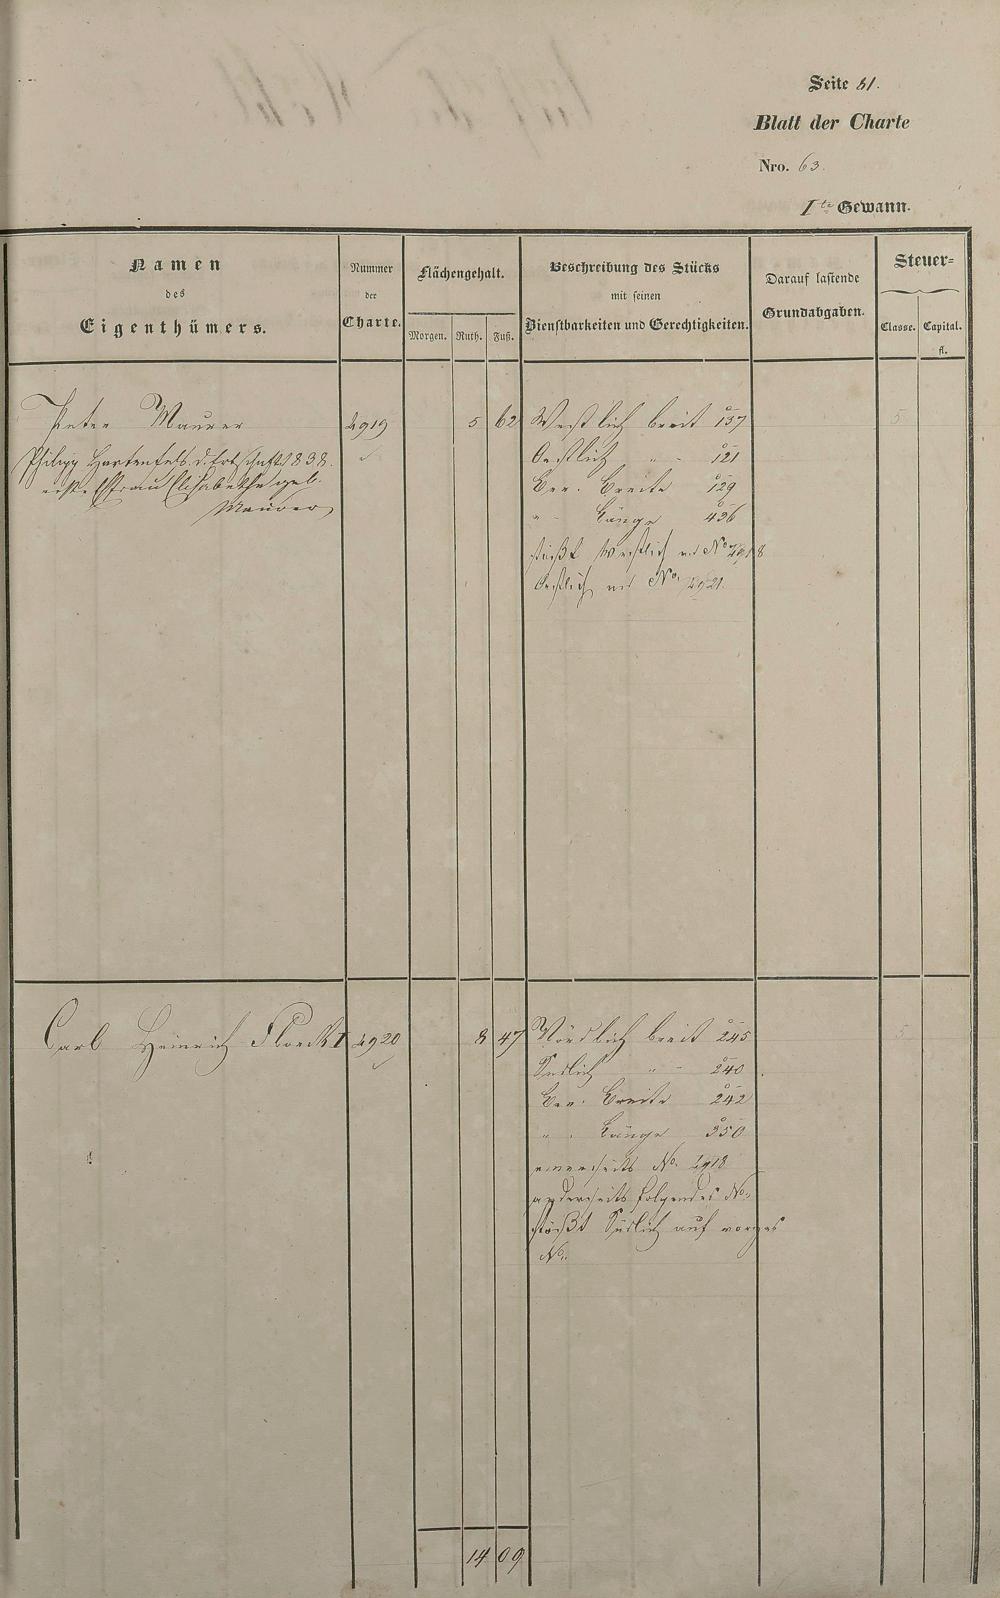 Seite 81.
Blatt der Charte
Nro. 63.
I te Gewann.
Namen
des
Eigenthümers.
Nummer
der
Charte.
Flächengehalt.
Morgen. Ruth. Fuß.
Beschreibung des Stücks
mit seinen
Dienstbarkeiten und Gerechtigkeiten.
Darauf lastende
Grundabgaben.
Steuer=
Classe. Capital.
fl.
Peter Maurer 2919 5 62 Westlich breit 137 5
Philipp Hartenfels d. Erbschaft 1838.
Ehefrau Elisabetha geb.
Maurer
Oestlich " - 121
Ber. Breite 129
" - Länge 436
stößt Westlich auf No. 2918
Oestlich auf No. 2921.
Carl Heinrich Floeck I 2920 8 47 Nördlich breit 245 5
Südlich " - 240
Ber. Breite 242
" . Länge 350
einerseits No. 2918
anderseits folgendes No.
stößt Südlich auf voriges
No.
14 09